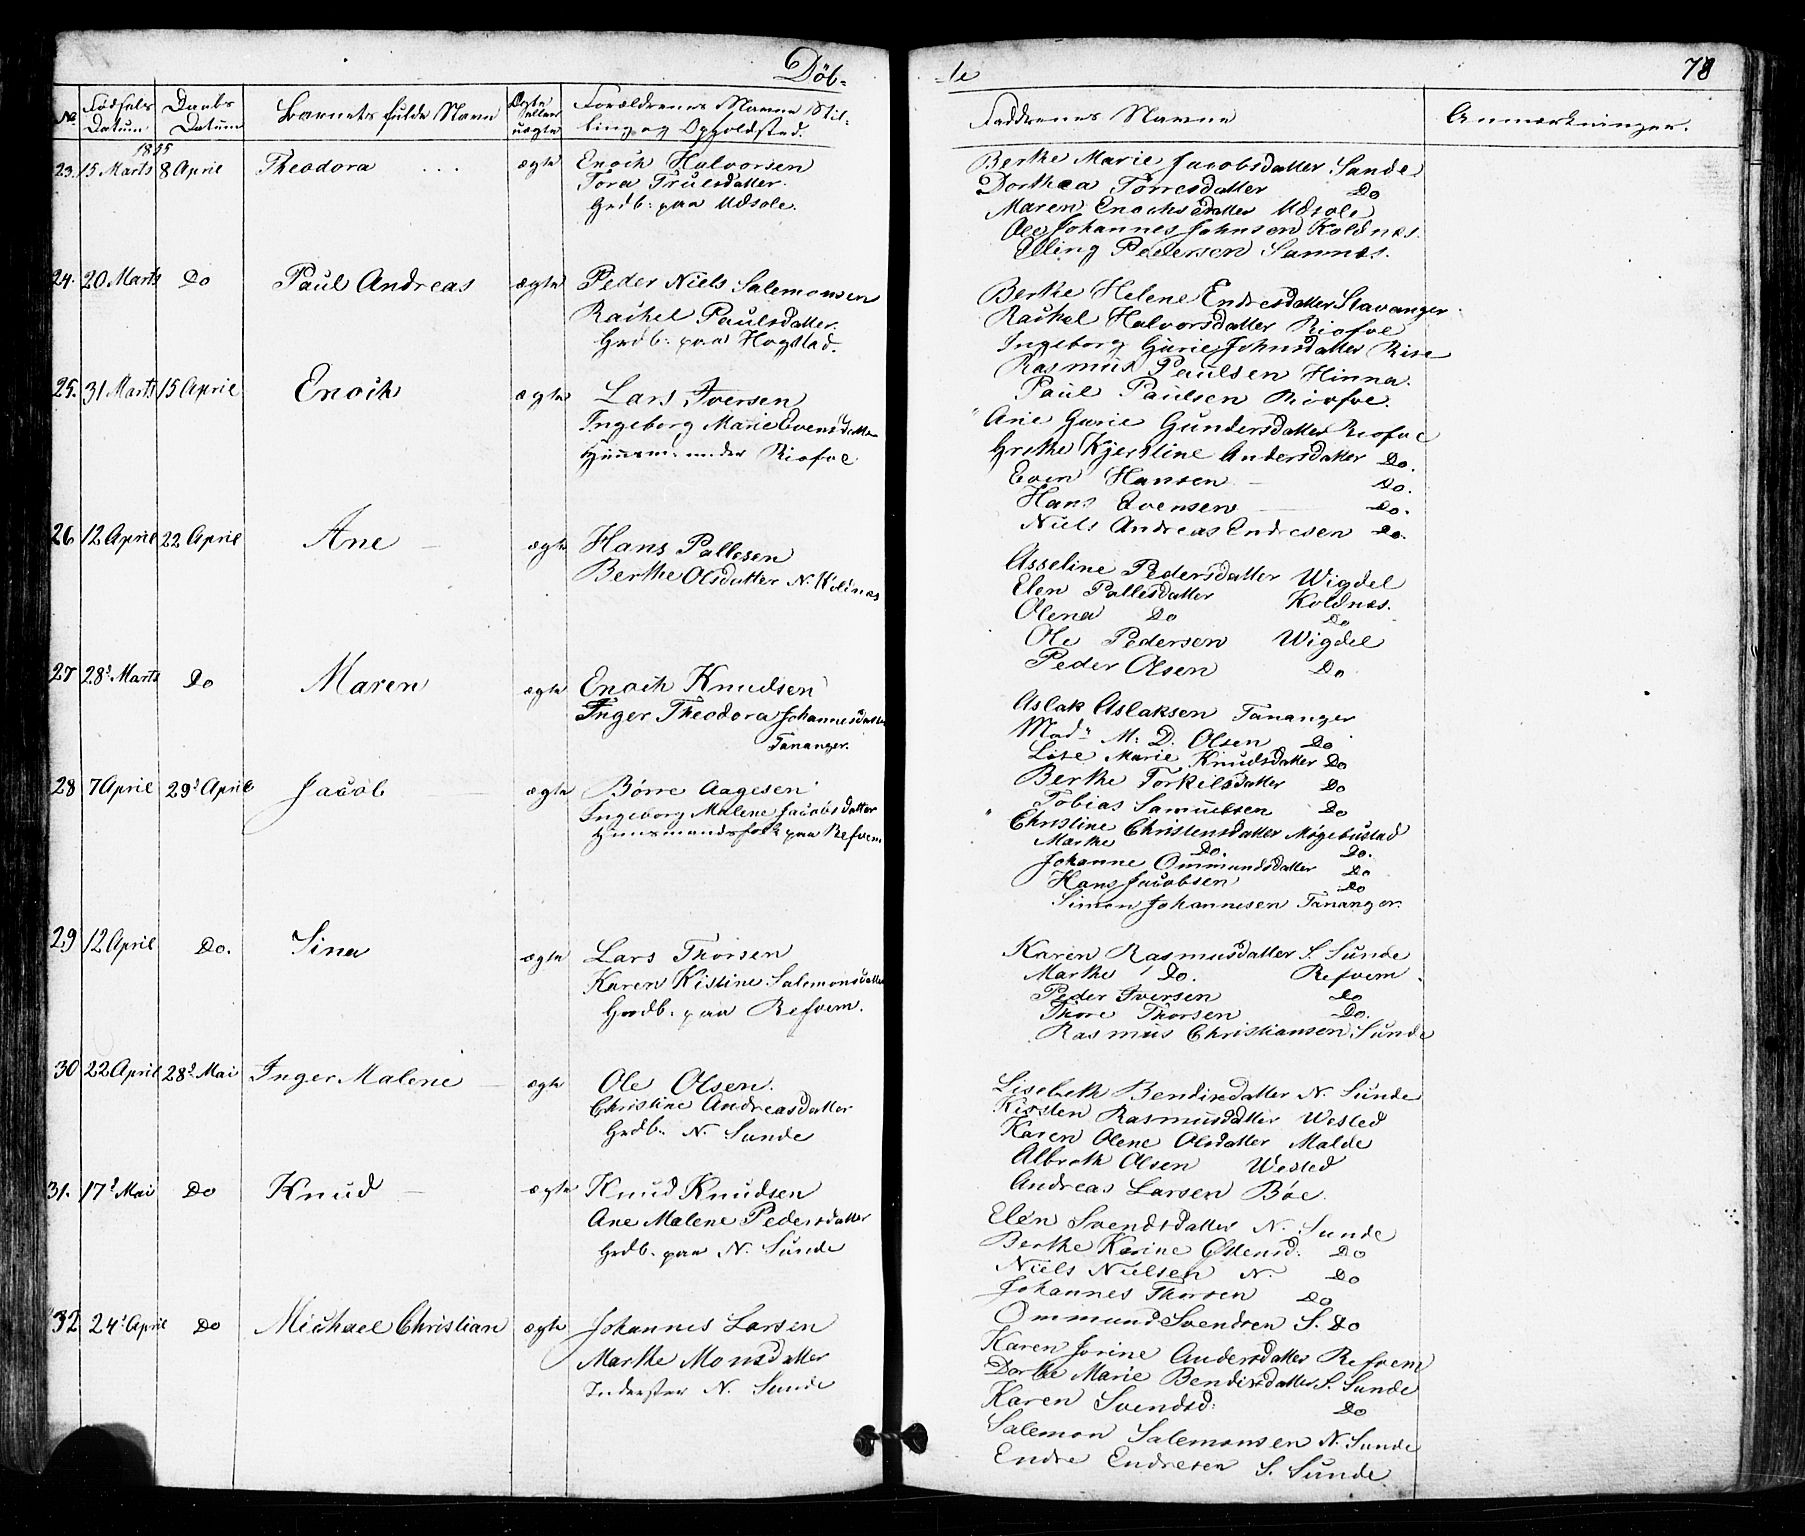 Döb-
te
78
No
Fødsels Datum
Daabs Datum
Barnets fulde Navn
Ægte eller uægte
Forældrenes Navne Stilling og Opholdsted.
Faddrenes Navne
Anmærkninger.
1845
23. 15 Marts 8 April Theodora ægte
Enoch Halvorsen
Tora Trulsdatter.
Grdb. paa Udsole.
Berthe Marie Jacobsdatter Sande
Dorthea Torresdatter Do
Maren Enochsdatter Udsole
Ole Johannes Johnsen Koldnæs.
Elling Pedersen Sannæs.
24. 20 Marts Do Paul Andreas ægte
Peder Niels Salemonsen
Rachel Paulsdatter.
Grdb. paa Hogstad.
Berthe Helene Endresdatter Stavanger
Rachel Halvorsdatter Riofve
Ingeborg Gurie Johnsdatter Rise
Rasmus Paulsen Hinna.
Paul Paulsen Riofve.
25. 31 Marts 15 April Enoch ægte
Lars Iversen
Ingeborg Marie Evensdatter
Huusm. under Riofve
Ane Gurie Gundersdatter Riofve
Grethe Kjerstine Andersdatter Do.
Even Hansen Do.
Hans Evensen Do.
Niels Andreas Endresen Do.
26 12 April 22 April Ane ægte
Hans Pallesen
Berthe Olsdatter N. Kolnæs
Asseline Pedersdatter Wigdel
Elen Pallesdatter Koldnæs.
Olena Do Do
Ole Pedersen Wigdel
Peder Olsen Do.
27 28d Marts Do Maren ægte
Enoch Knudsen
Inger Theodora Johannesdatter
Tananger.
Aslak Aslaksen Tananger
Madm M. D. Olsen Do
Lise Marie Knudsdatter Do
Berthe Torkilsdatter Do
Tobias Samuelsen Do
28 7 April 29d April Jacob ægte
Børre Aagesen
Ingeborg Malene Jacobsdatter
Huusmandsfolk paa Refvem
Christine Christensdatter Møgebustad
Marthe Do. Do.
Johanne Ommundsdatter Do
Hans Jacobsen Do
Simon Johannesen Tananger.
29 12 April Do. Sina ægte
Lars Thorsen
Karen Kistine Salemonsdatter
Grdb. paa Refvem.
Karen Rasmusdatter S. Sunde
Marthe Do. Refvem
Peder Iversen Do
Thore Thorsen Do.
Rasmus Christiansen Sunde
30 22 April 28d Mai Inger Malene ægte
Ole Olsen.
Christine Andreasdatter
Grdb. N. Sunde
Lisebeth Bendixdatter N. Sunde
Kirsten Rasmusdatter Wested
Karen Olene Olsdatter Malde
Albreth Olsen Wested
Andreas Larsen Bøe.
31. 17d Mai Do Knud ægte
Knud Knudsen
Ane Malene Pedersdatter
Grdb. paa N. Sunde
Elen Svendsdatter N. Sunde
Berthe Karine Ostensd. Do
Niels Nielsen N. Do
Johannes Thorsen Do
Ommund Svendsen S. Do
32 24d April Do Michael Christian ægte
Johannes Larsen
Marthe Monsdatter
Inderster N. Sunde
Karen Jorine Andersdatter Refvem
Dorthe Marie Bendixdatter S. Sunde
Karen Svendsd. Do
Salemon Salemonsen N. Sunde
Endre Endresen S. Sunde